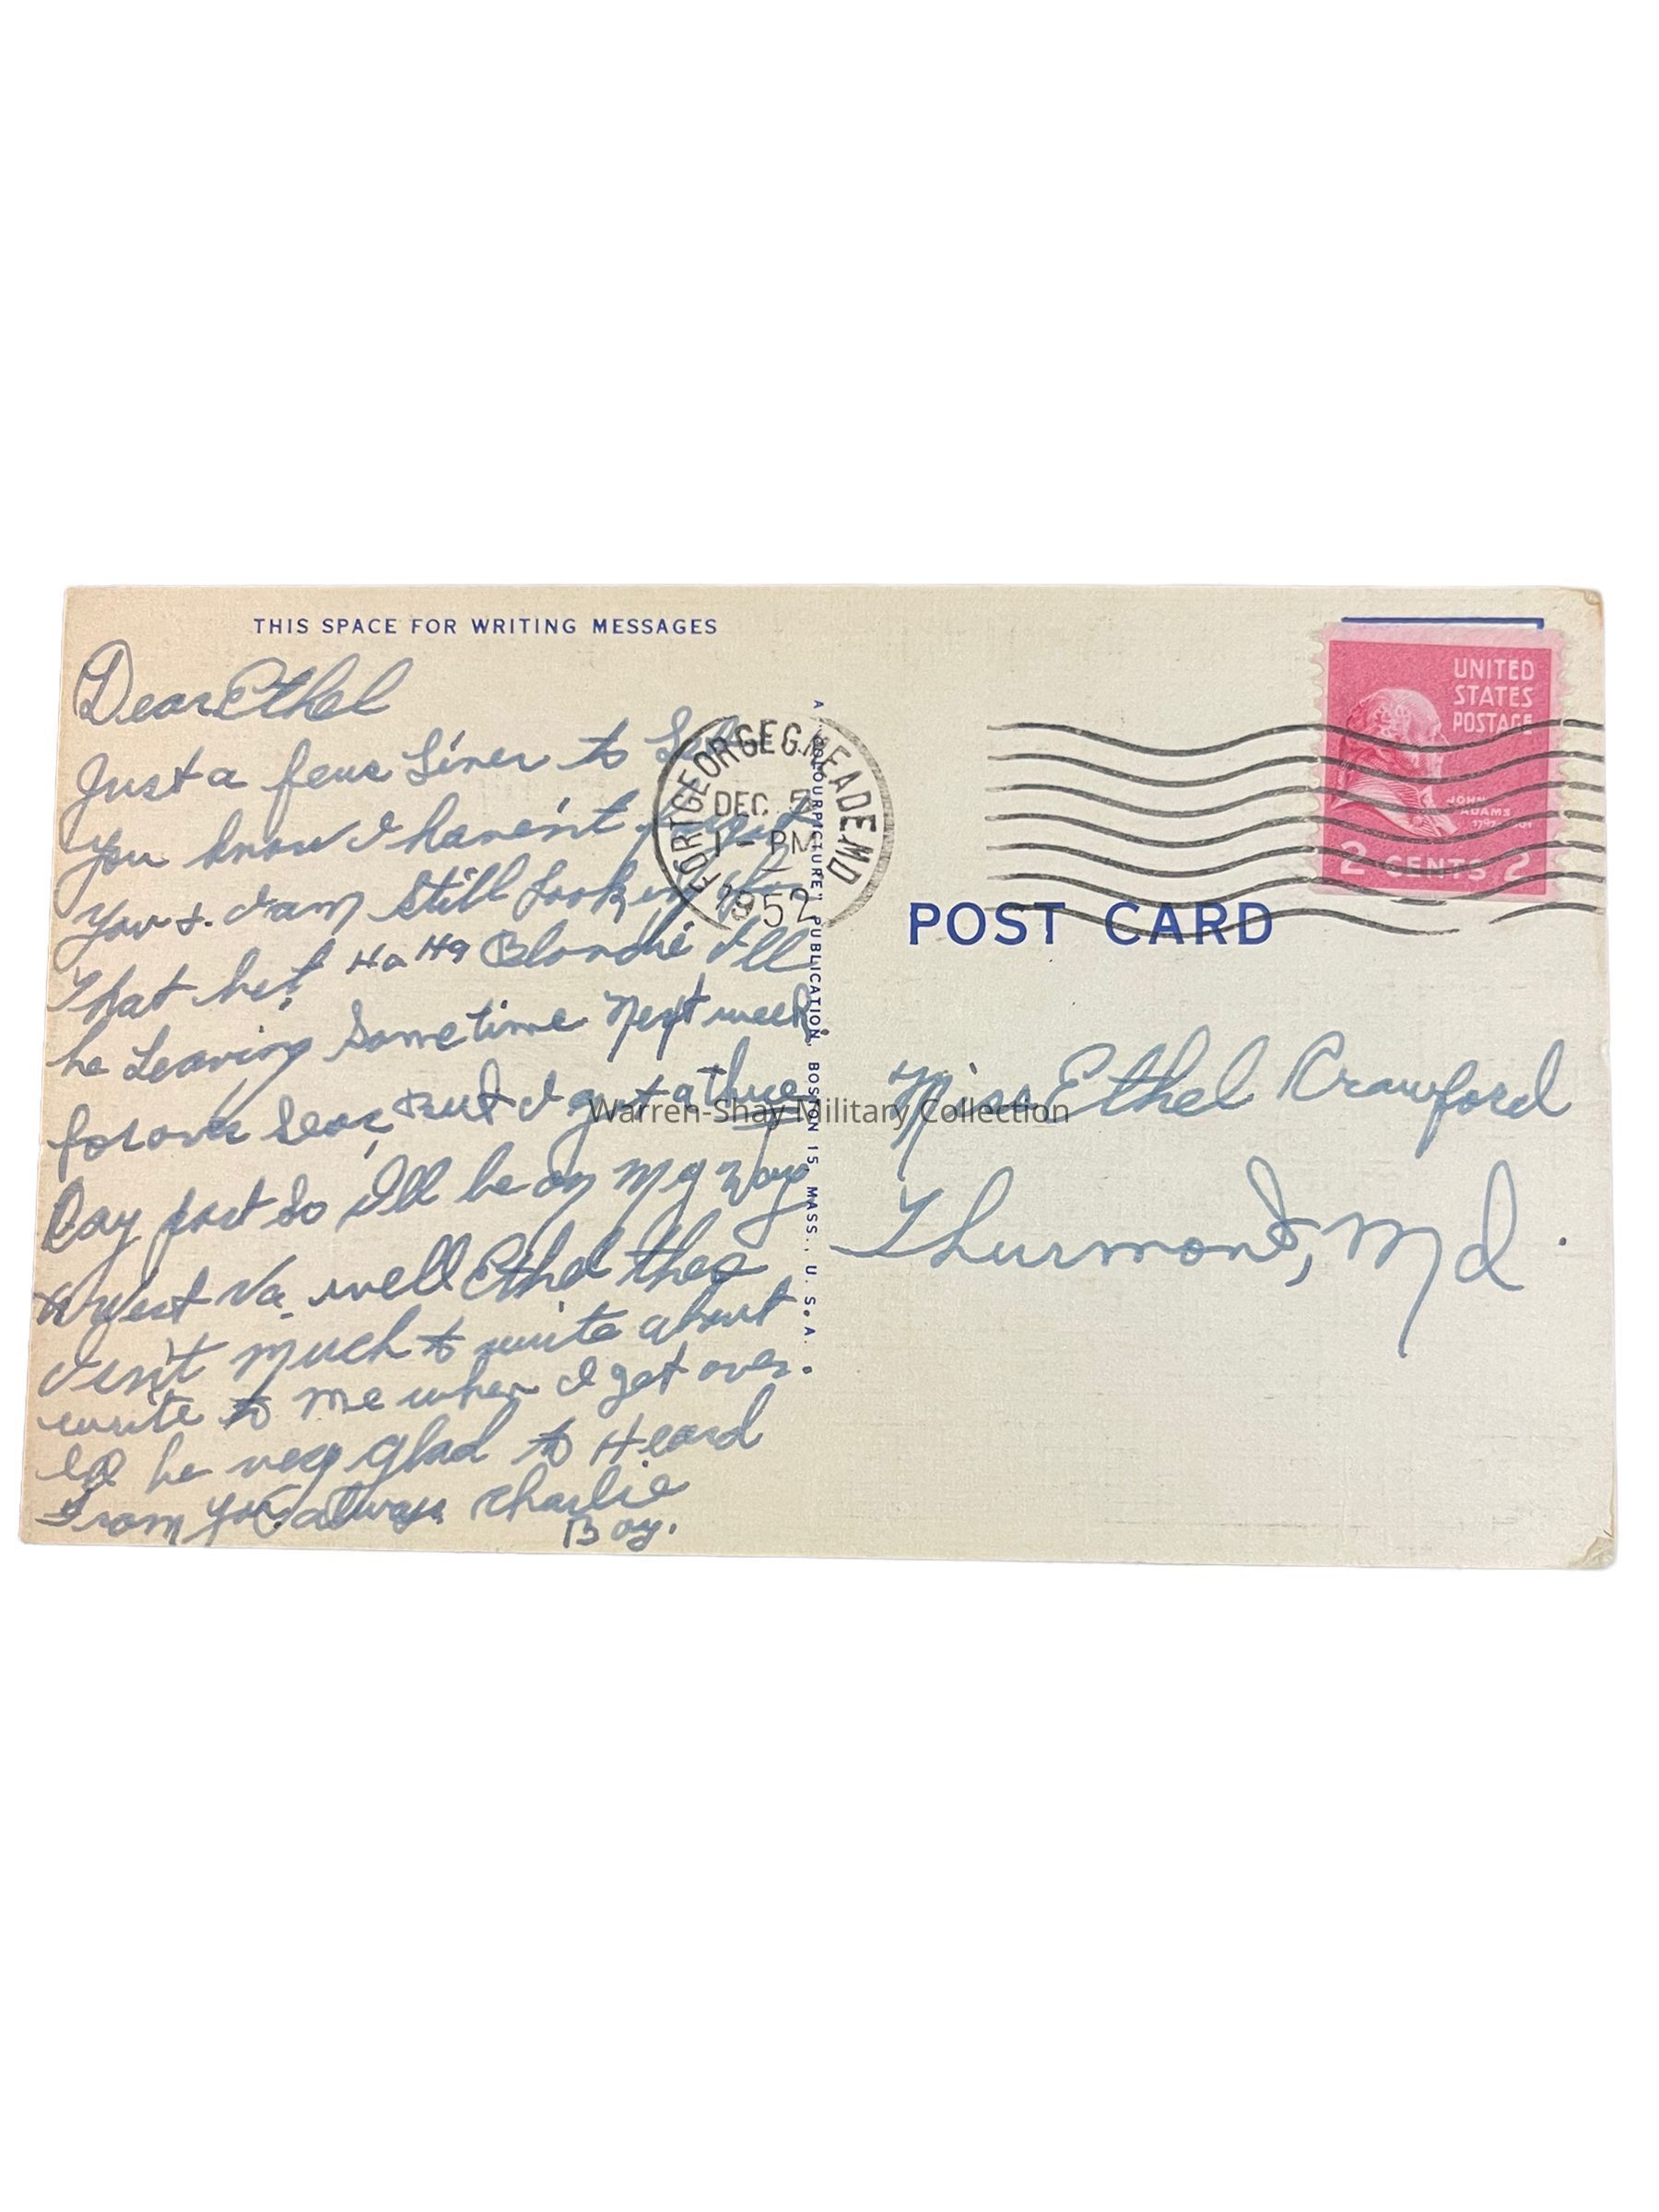 THIS SPACE FOR WRITING MESSAGES
Dear Ethel
Just a few Lines to Let
You know I haven't forgot
You & I am still Looking for
That bet Ha Ha Blondie I'll
be Leaving Sometime Next week
for over Seas, But I got a three
Day past So I'll be on My Way
to West Va. well Ethel there
isn't Much to write about
write to me when I get over.
I'd be very glad to Heard
From you always Charlie
Boy.
FORT GEORGE G. MEADE MD
DEC
1 - PM
1952
A "COLOURPICTURE" PUBLICATION, BOSTON 15, MASS., U. S. A.
UNITED
STATES
POSTAGE
JOHN
ADAMS
2 CENTS 2
POST CARD
Miss Ethel Crawford
Thurmont, Md.
Warren-Shay Military Collection